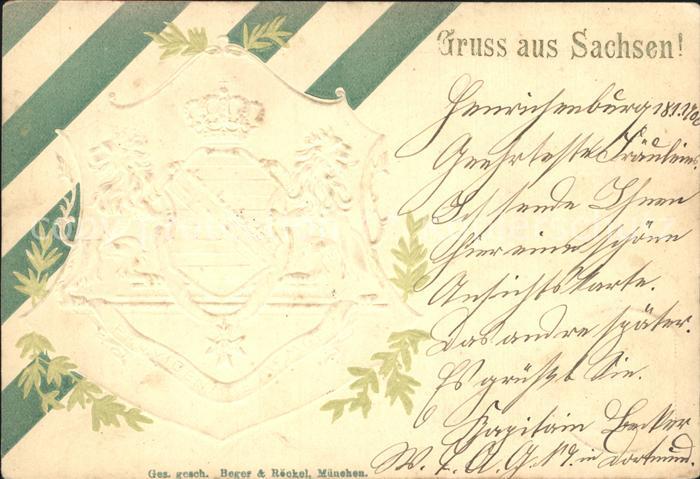 Gruss aus Sachsen!
Henrichenburg 18.1.1900
Geehrtestes Fräulein.
Ich sende Ihnen
hier eine schöne
Ansichtskarte.
Das andre später.
Es grüßt Sie.
Kapitän Becker
W. T. A. G. in Dortmund.
Ges. gesch. Beger & Röckel, München.